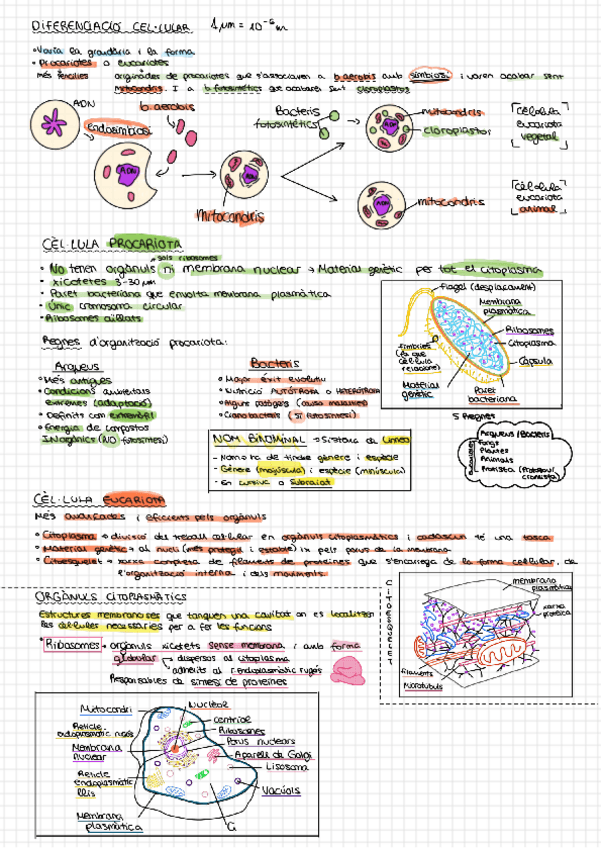 DIFERENCIACIÓ CEL·LULAR 1 μm = 10⁻⁶ m
• Varia la grandària i la forma
• Procariotes o eucariotes
més senzilles originades de procariotes que s'associaven a b. aerobis amb simbiosi i varen acabar sent
mitocondris. I a b. fotosintètics que acabaren sent cloroplastos
ADN
b. aerobis
endosimbiosi
ADN
ADN
Mitocondris
Bacteris
fotosintètics
ADN
mitocondris
cloroplastos
Cèl·lula
eucariota
vegetal
ADN
mitocondris
Cèl·lula
eucariota
animal
CÈL·LULA PROCARIOTA
sols ribosomes
• No tenen orgànuls ni membrana nuclear → Material genètic per tot el citoplasma
• xicotetes 3-30 μm
• Paret bacteriana que envolta membrana plasmàtica
• Únic cromosoma circular
• Ribosomes aïllats
Regnes d'organització procariota:
Arqueus
• Més antigues
• Condicions ambientals
extremes (adaptació)
• Definits com extremòfil
• Energia de compostos
INorgànics (NO fotosíntesi)
Bacteris
• Major èxit evolutiu
• Nutrició AUTÒTROFA o HETERÒTROFA
• Alguns patògens (causa malalties)
• Cianobacteris (SÍ fotosíntesi)
flagel (desplaçament)
Membrana
plasmàtica
Ribosomes
Citoplasma
Càpsula
Paret
bacteriana
Material
genètic
Fímbries
(fa que
cèl·lula
relacione)
NOM BINOMINAL → Sistema de Linneo
- Nom ha de tindre gènere i espècie
- Gènere (majúscula) i espècie (minúscula)
- En cursiva o subratllat
5 Regnes
Arqueus/Bacteris
Fongs
Plantes
Animals
Protista (Protozou/
cromista)
eucariotes
CÈL·LULA EUCARIOTA
Més avançades i eficients pels orgànuls
• Citoplasma → divisió del treball cel·lular en orgànuls citoplasmàtics i cadascun té una tasca
• Material genètic → al nucli (més protegit i estable) ix pels porus de la membrana
• Citoesquelet → xarxa completa de filaments de proteïnes que s'encarrega de la forma cel·lular, de
l'organització interna i dels moviments.
ORGÀNULS CITOPLASMÀTICS
Estructures membranoses que tanquen una cavitat on es localitzen
les cèl·lules necessàries per a fer les funcions
• Ribosomes → orgànuls xicotets sense membrana i amb forma
globular
dispersos al citoplasma
adherits al r. endoplasmàtic rugós
Responsables de síntesi de proteïnes
CITOESQUELET
membrana
plasmàtica
xarxa
proteica
filaments
Microtúbuls
Mitocondri
Reticle
endoplasmàtic rugós
Membrana
nuclear
Reticle
endoplasmàtic
llis
Membrana
plasmàtica
Nuclèol
Centríol
Ribosomes
Porus nuclears
Aparell de Golgi
Lisosoma
Vacúols